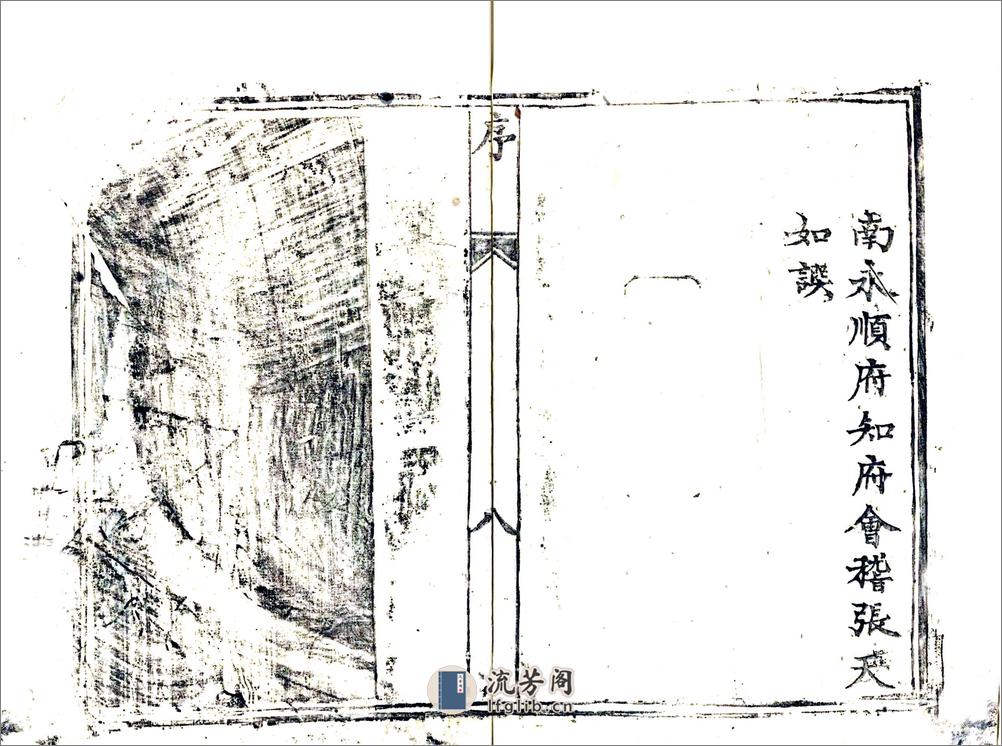 南永順府知府會稽張天
如譔
序
八
流芳阁
lfglib.cn